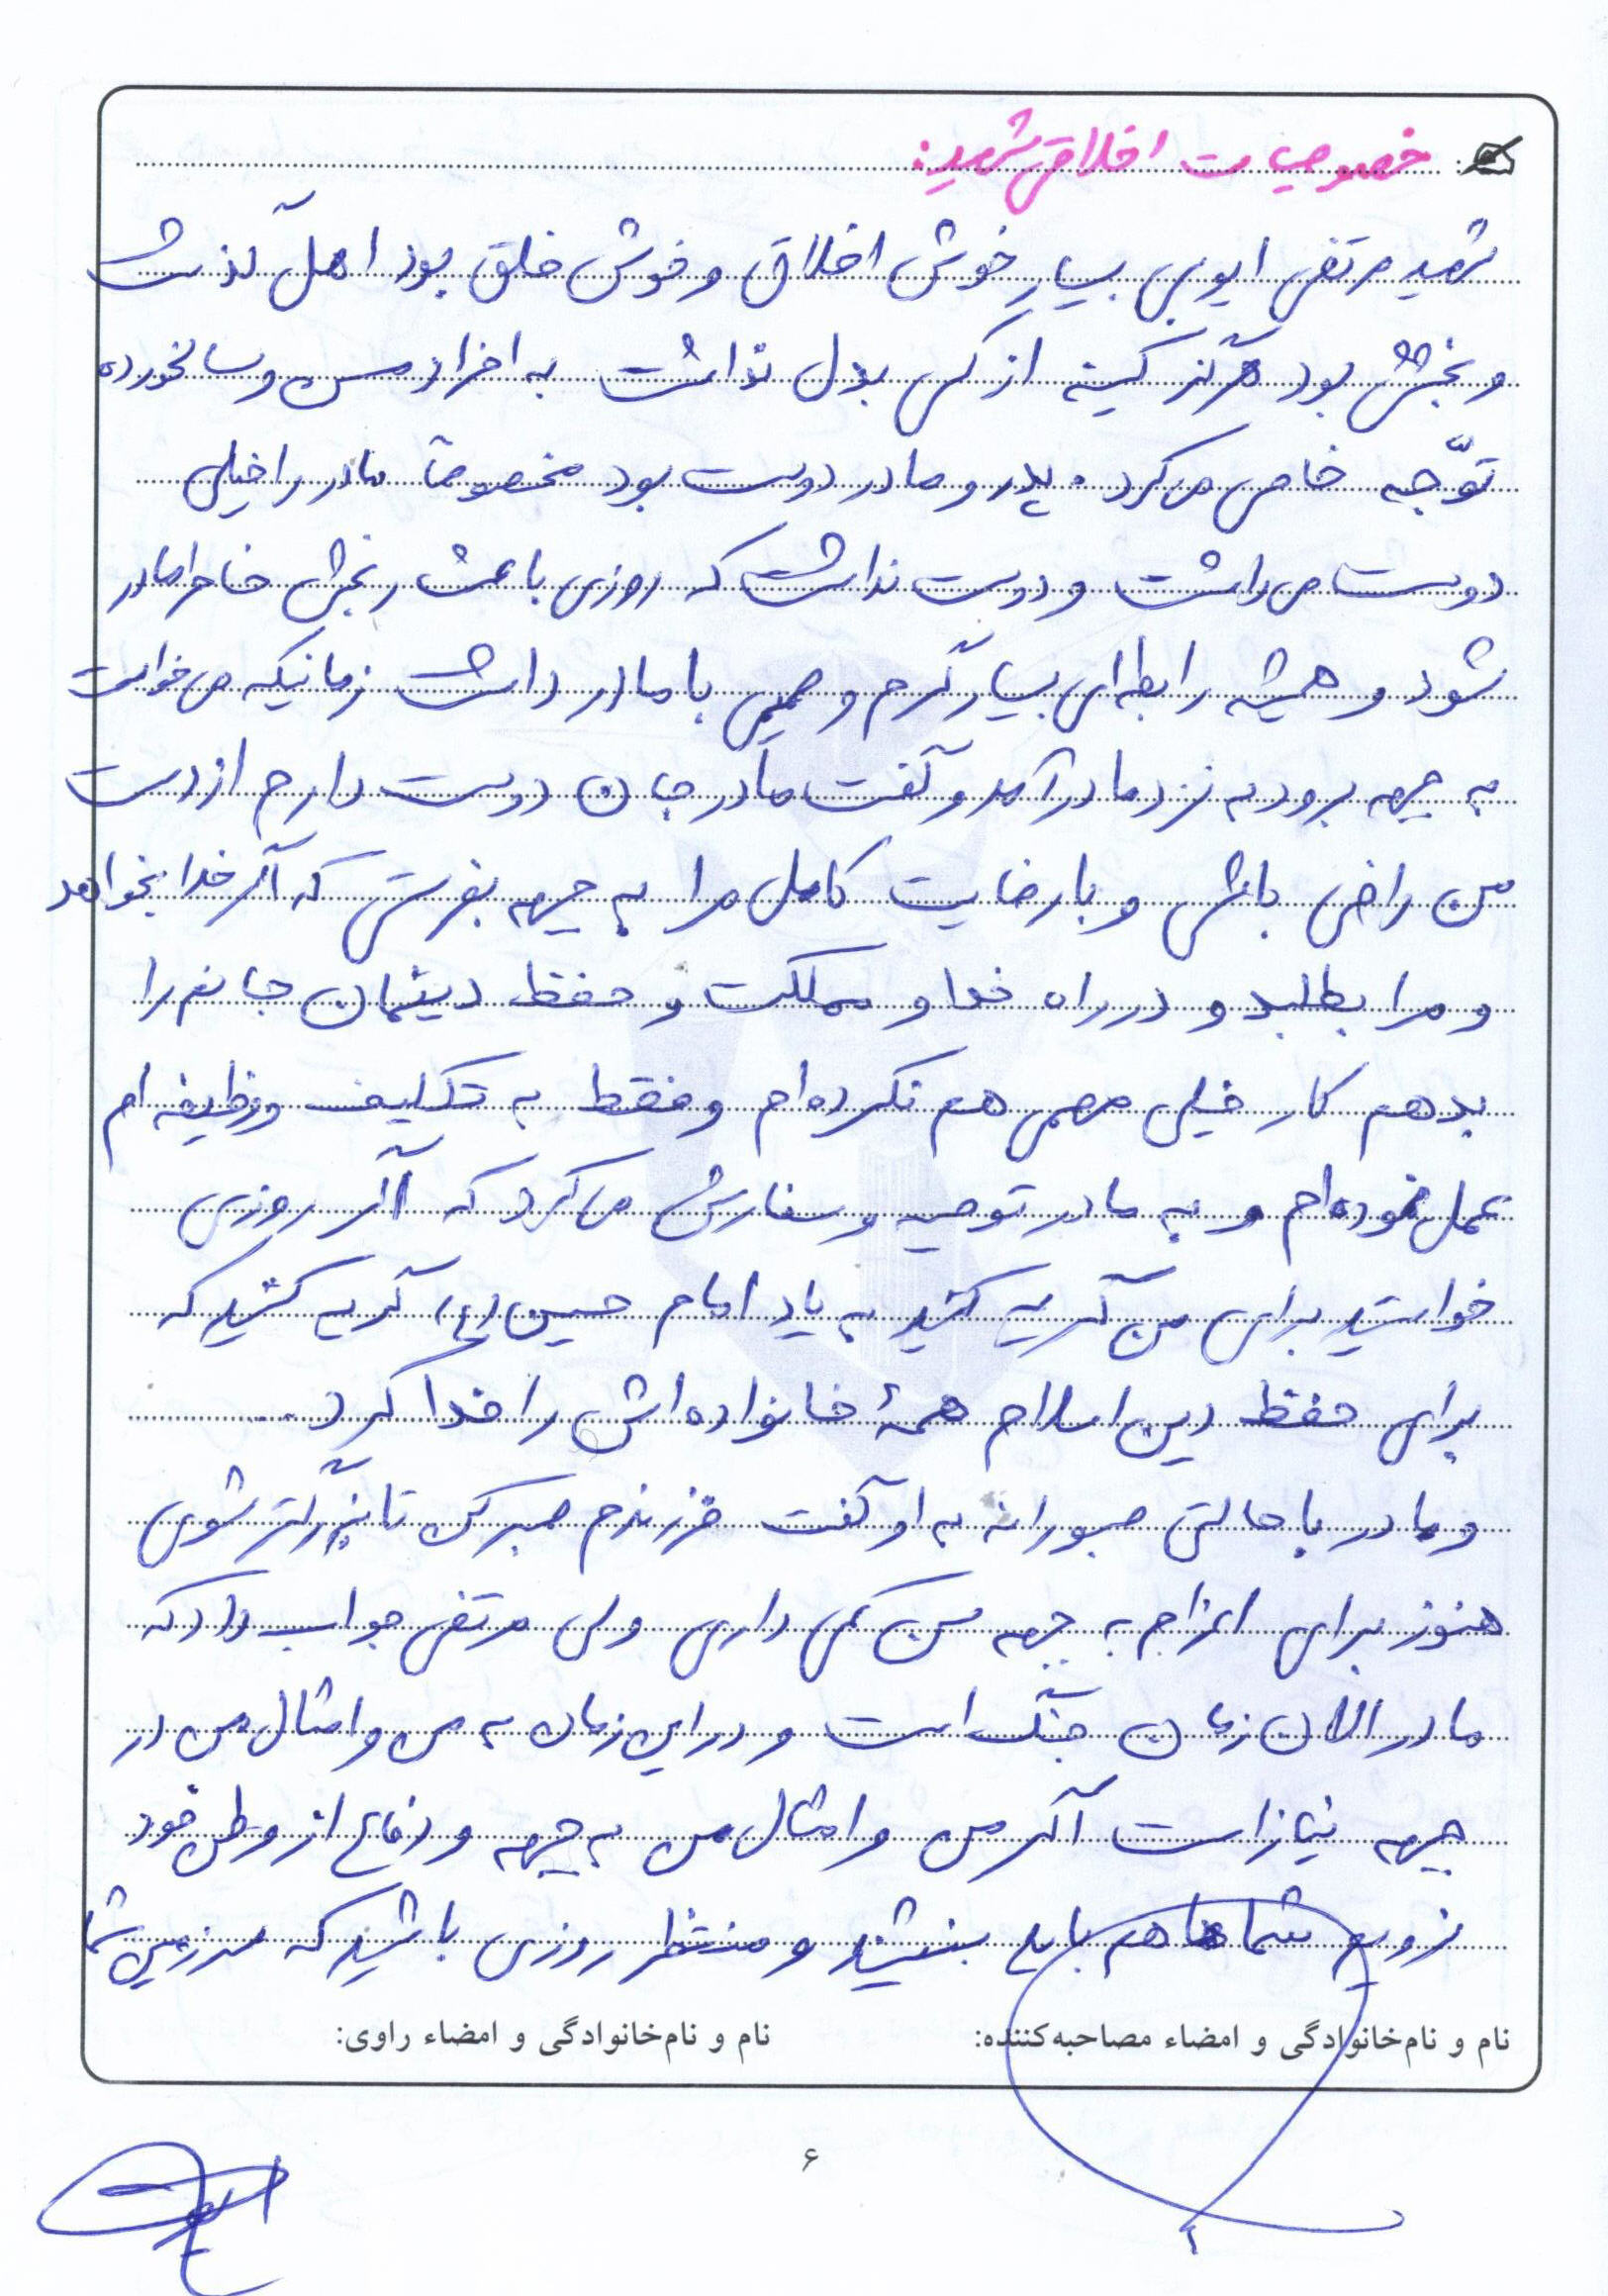 خصوصیات اخلاقی شهید:
شهید مرتضی ایوبی بسیار خوش اخلاق و خوش خلق بود اهل گذشت
و بخشش بود هرگز کینه از کسی بدل نداشت به افراد مسن و سالخورده
توّجه خاصی می‌کرد. پدر و مادر دوست بود مخصوصاً مادر را خیلی
دوست می‌داشت و دوست نداشت که روزی باعث رنجش خاطر مادر
شود و همیشه رابطه‌ای بسیار گرم و صمیمی با مادر داشت زمانیکه می‌خواست
به جبهه برود به نزد مادر آمد و گفت مادر جان دوست دارم از دست
من راضی باشی و با رضایت کامل مرا به جبهه بفرستی که اگر خدا بخواهد
و مرا بطلبد و در راه خدا و مملکت و حفظ دینمان جانم را
بدهم کار خیلی مهمی هم نکرده‌ام و فقط به تکلیف و وظیفه ام
عمل نموده‌ام و به مادر توصیه و سفارش می‌کرد که اگر روزی
خواستید برای من گریه کنید به یاد امام حسین (ع) گریه کنید که
برای حفظ دین اسلام همهٔ خانواده‌اش را فدا کرد...
و مادر با حالتی صبورانه به او گفت فرزندم صبر کن تا بزرگتر شوی
هنوز برای اعزام به جبهه سن کمی داری ولی مرتضی جواب داد که
مادر الان زمان جنگ است و در این زمان به من و امثال من در
جبهه نیاز است اگر من و امثال من به جبهه و دفاع از وطن خود
نرویم شماها هم باید بنشیند و منتظر روزی باشید که سرزمین شما
نام و نام‌خانوادگی و امضاء مصاحبه‌کننده:
نام و نام‌خانوادگی و امضاء راوی:
۶